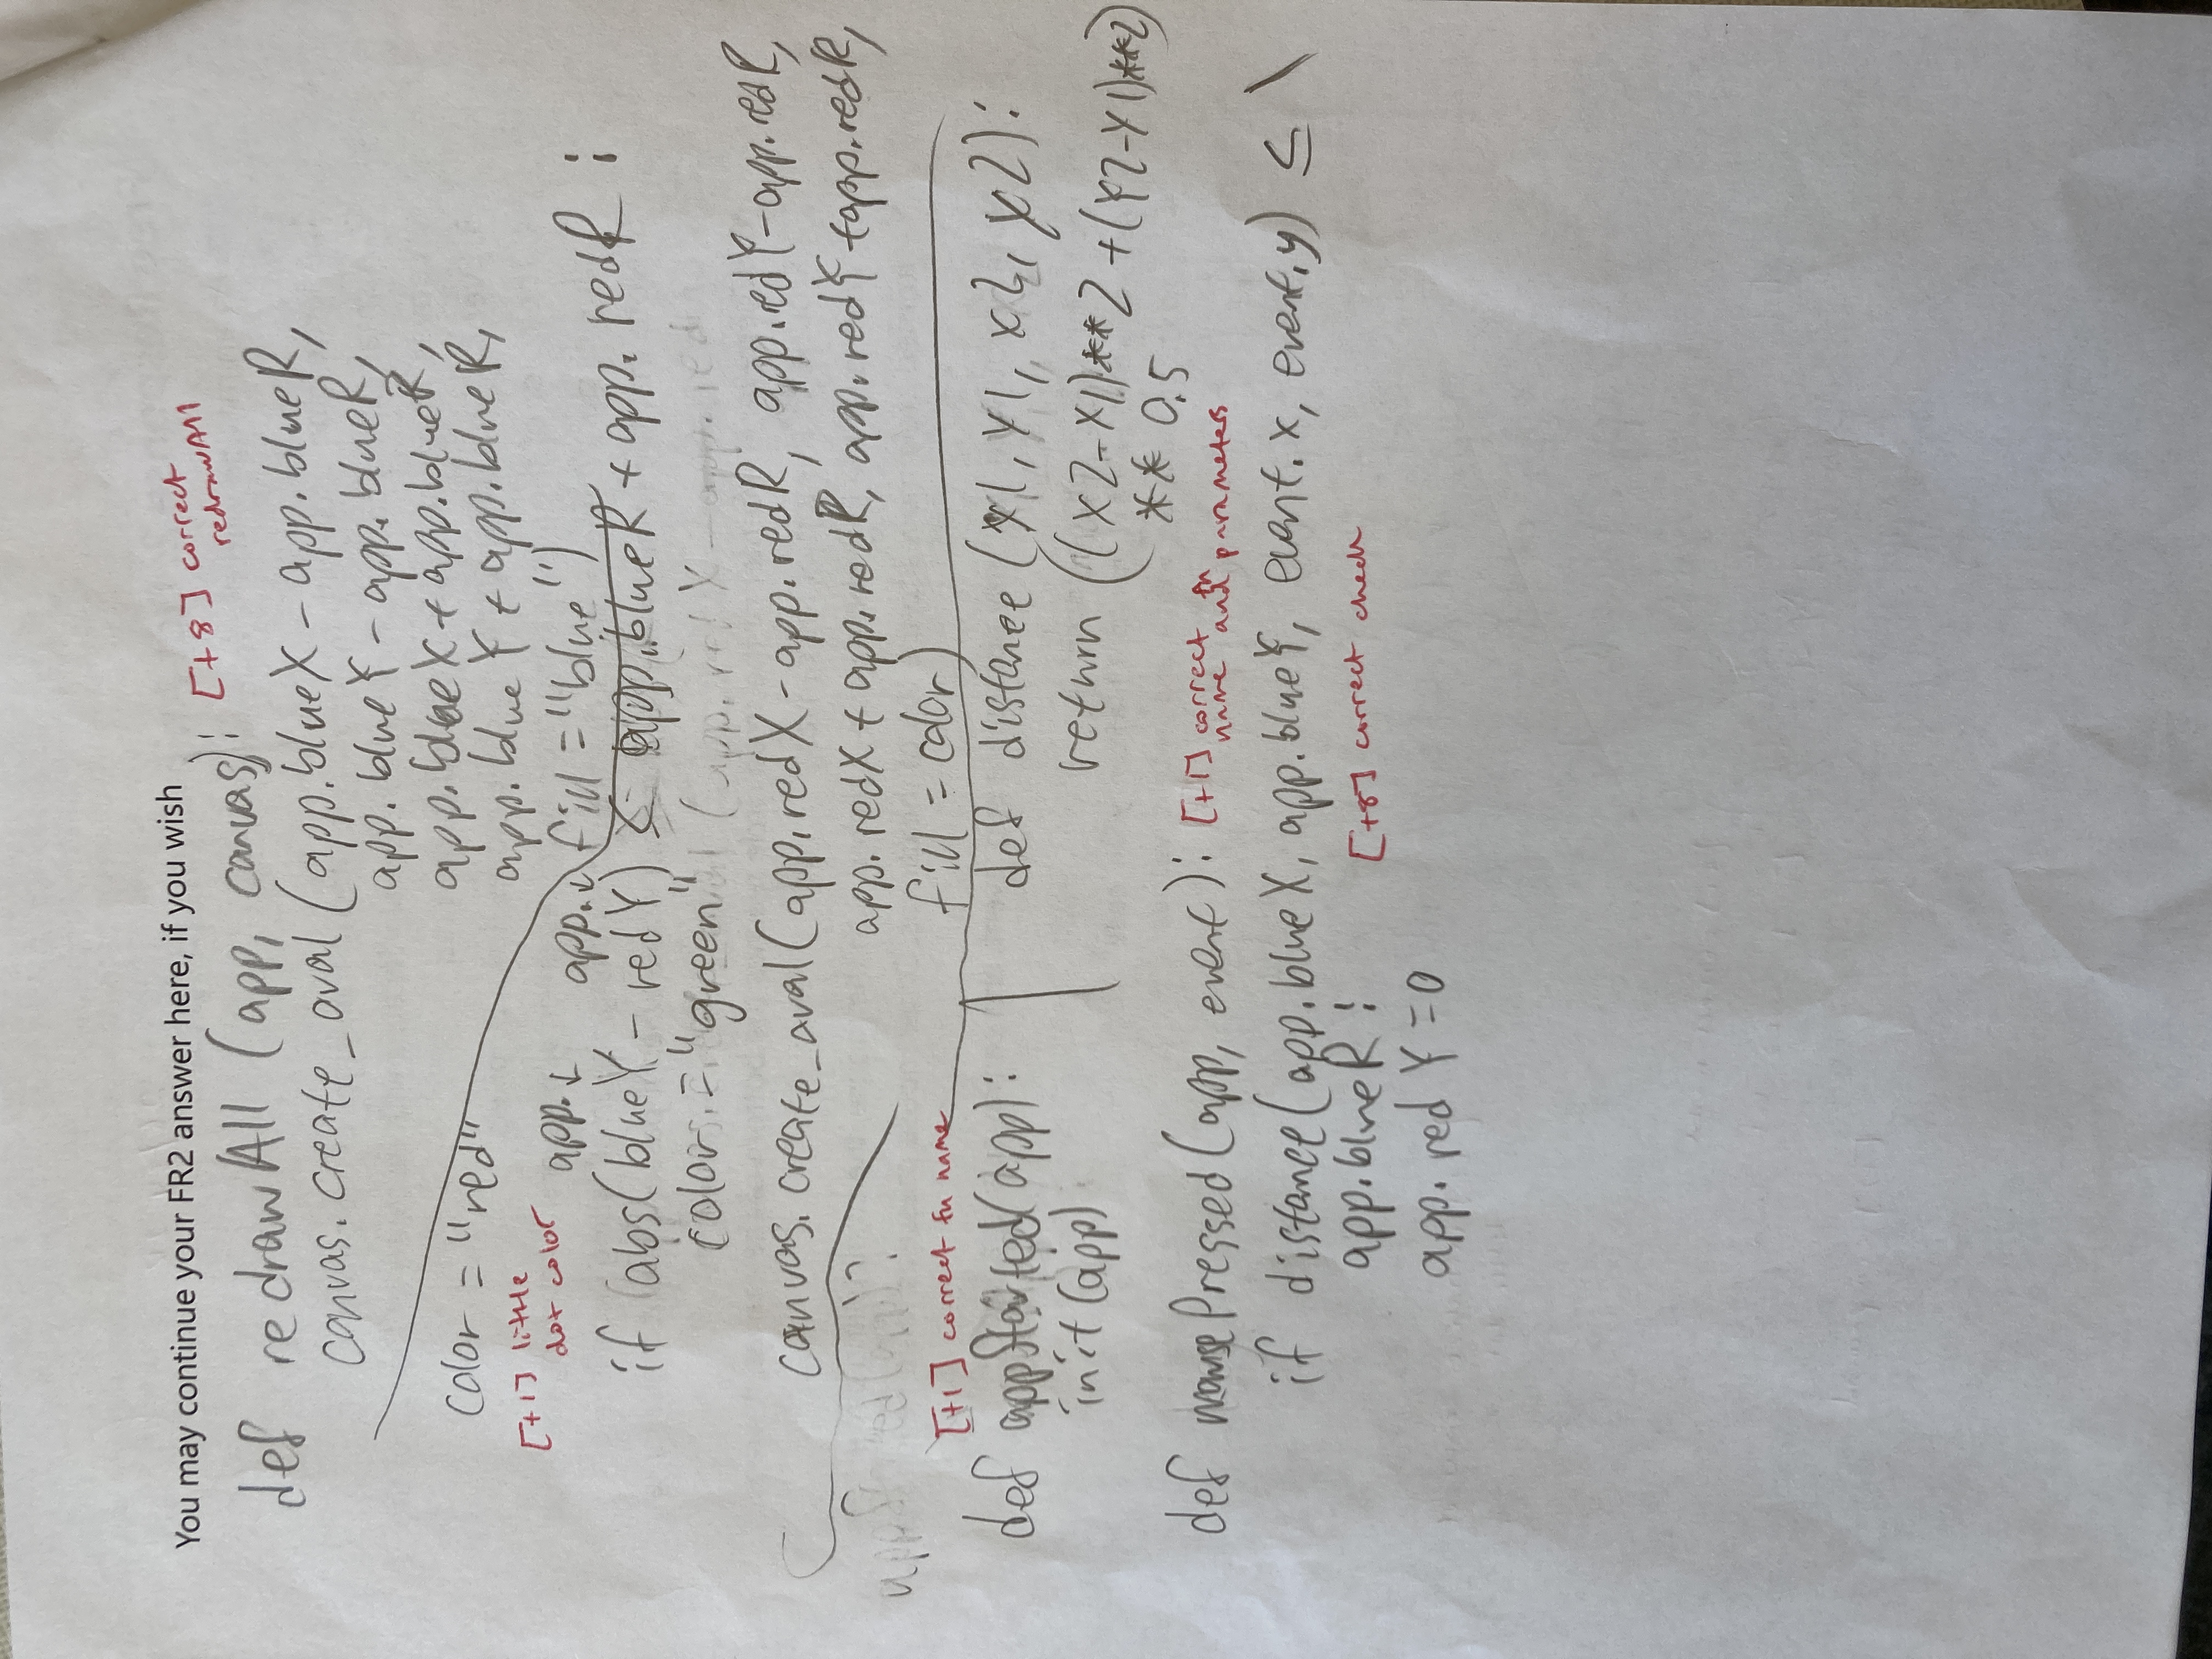 You may continue your FR2 answer here, if you wish
[+8] correct
redrawAll
def redrawAll (app, canvas):
canvas.create_oval (app.blueX - app.blueR,
app.blueY - app.blueR,
app.blueX + app.blueR,
app.blueY + app.blueR,
fill = "blue")
color = "red"
[+1] little
dot color
app.↓ app.↓
if (abs(blueY - redY) ≤ app.blueR + app.redR :
color = "green"
canvas.create_oval(app.redX - app.redR, app.redY - app.redR,
app.redX + app.redR, app.redY + app.redR,
fill = color)
[+1] correct fn name
def appStarted(app):
init(app)
def distance (x1, y1, x2, y2):
return ((x2-x1)**2 + (y2-y1)**2)
** 0.5
def mousePressed(app, event):
[+1] correct fn
name and parameters
if distance(app.blueX, app.blueY, event.x, event.y) ≤ \
app.blueR :
[+8] correct check
app.redY = 0